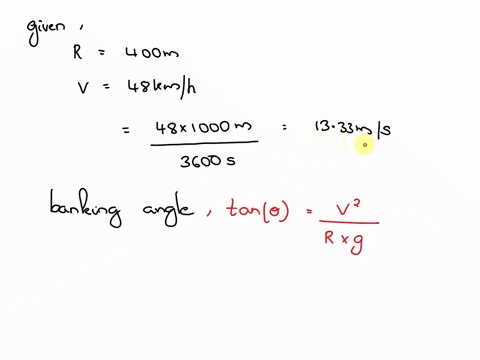 given,
R = 400m
V = 48km/h
= 48×1000m / 3600s = 13.33m/s
banking angle, tan(θ) = V² / R×g